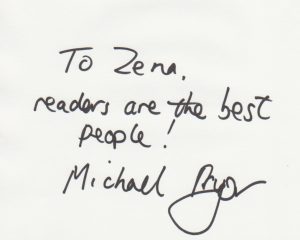 To Zena,
readers are the best
people!
Michael Pryor